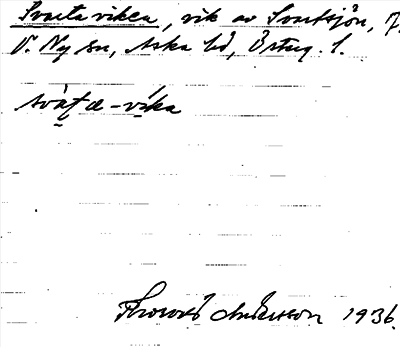 Svarta viken, vik av Svartsjön, 7.
V. Ny sn, Aska hd, Östug. l.
svàṭæ-vika
Thorvald Andersson 1936